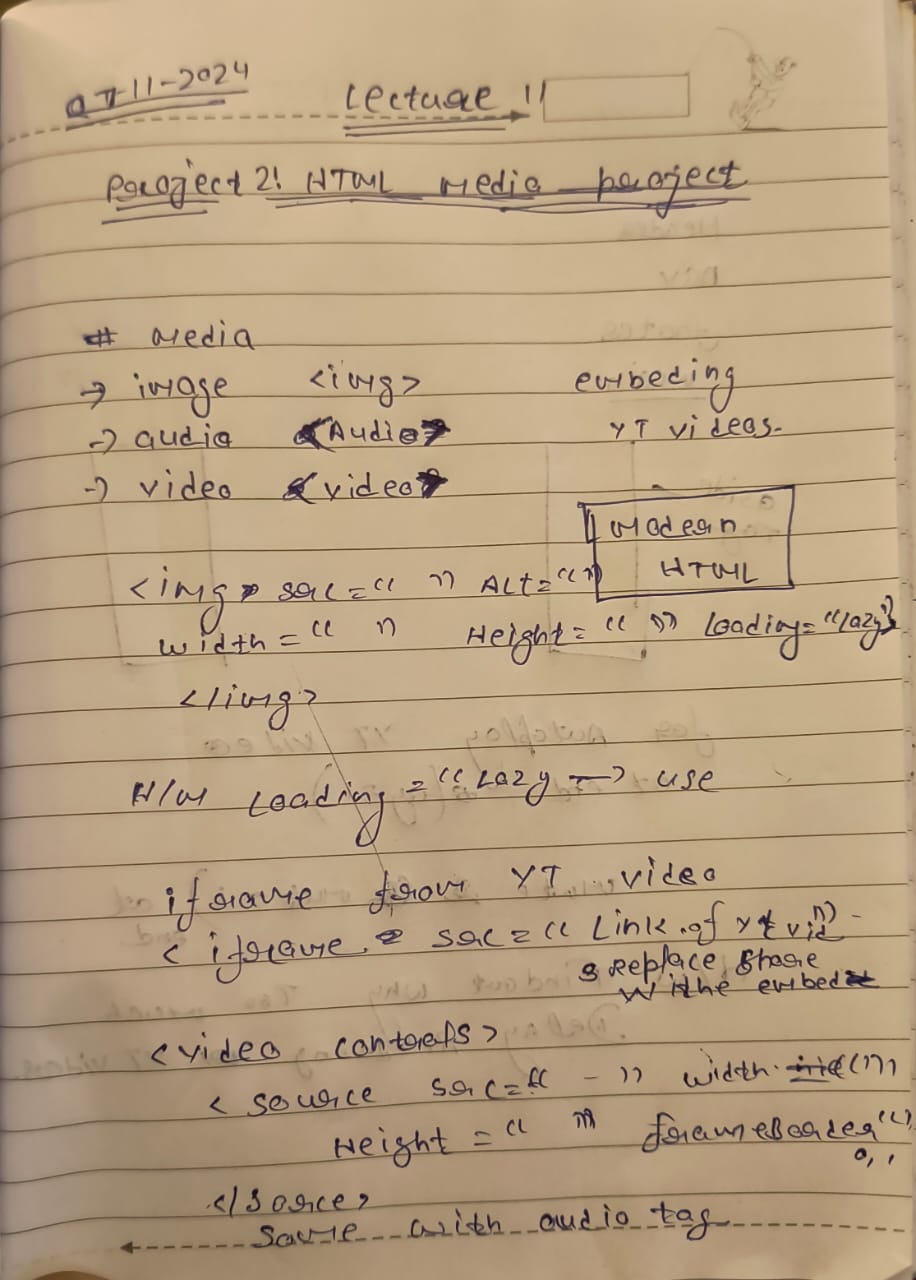 07-11-2024 Lecture 11
Project 2! HTML Media project
# Media
→ image <img> embeding
→ audio <Audio> YT videos.
→ video <video>
Modern
HTML
<img src="" Alt=""
width="" Height="" Loading="lazy"
</img>
H/W Loading="Lazy → use
iframe from YT video
<iframe src="Link of yt vid"
Replace Share
withe embed
<video controls>
<source src="-" width ""
Height="" frameBorder""
0,1
</Sorce>
Same with audio tag